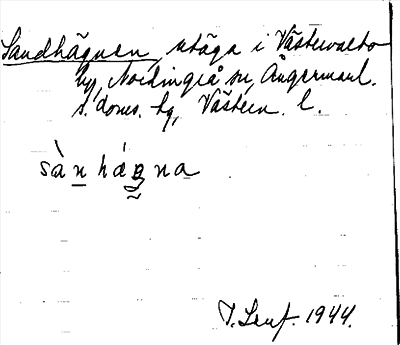 Sandhägnen, utäga i Västervalto
by, Nordingrå sn, Ångermanl.
s. doms. hg, Västern. l.
sàn háŋna
1944.